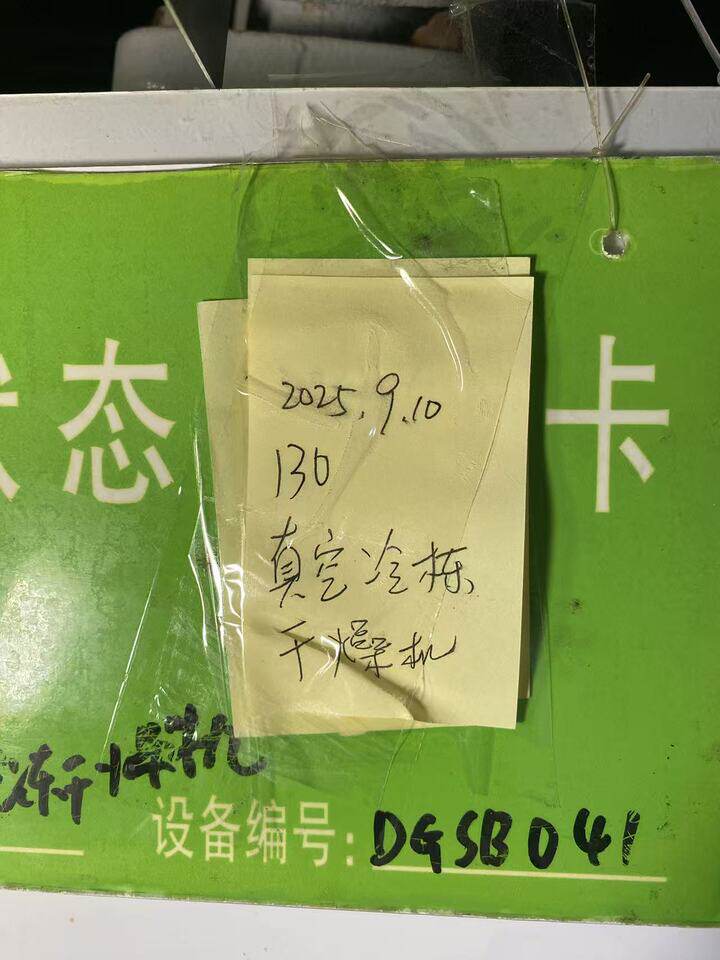 态 卡
2025.9.10
130
真空冷栋
干燥机
冻干燥机
设备编号: DGSB041